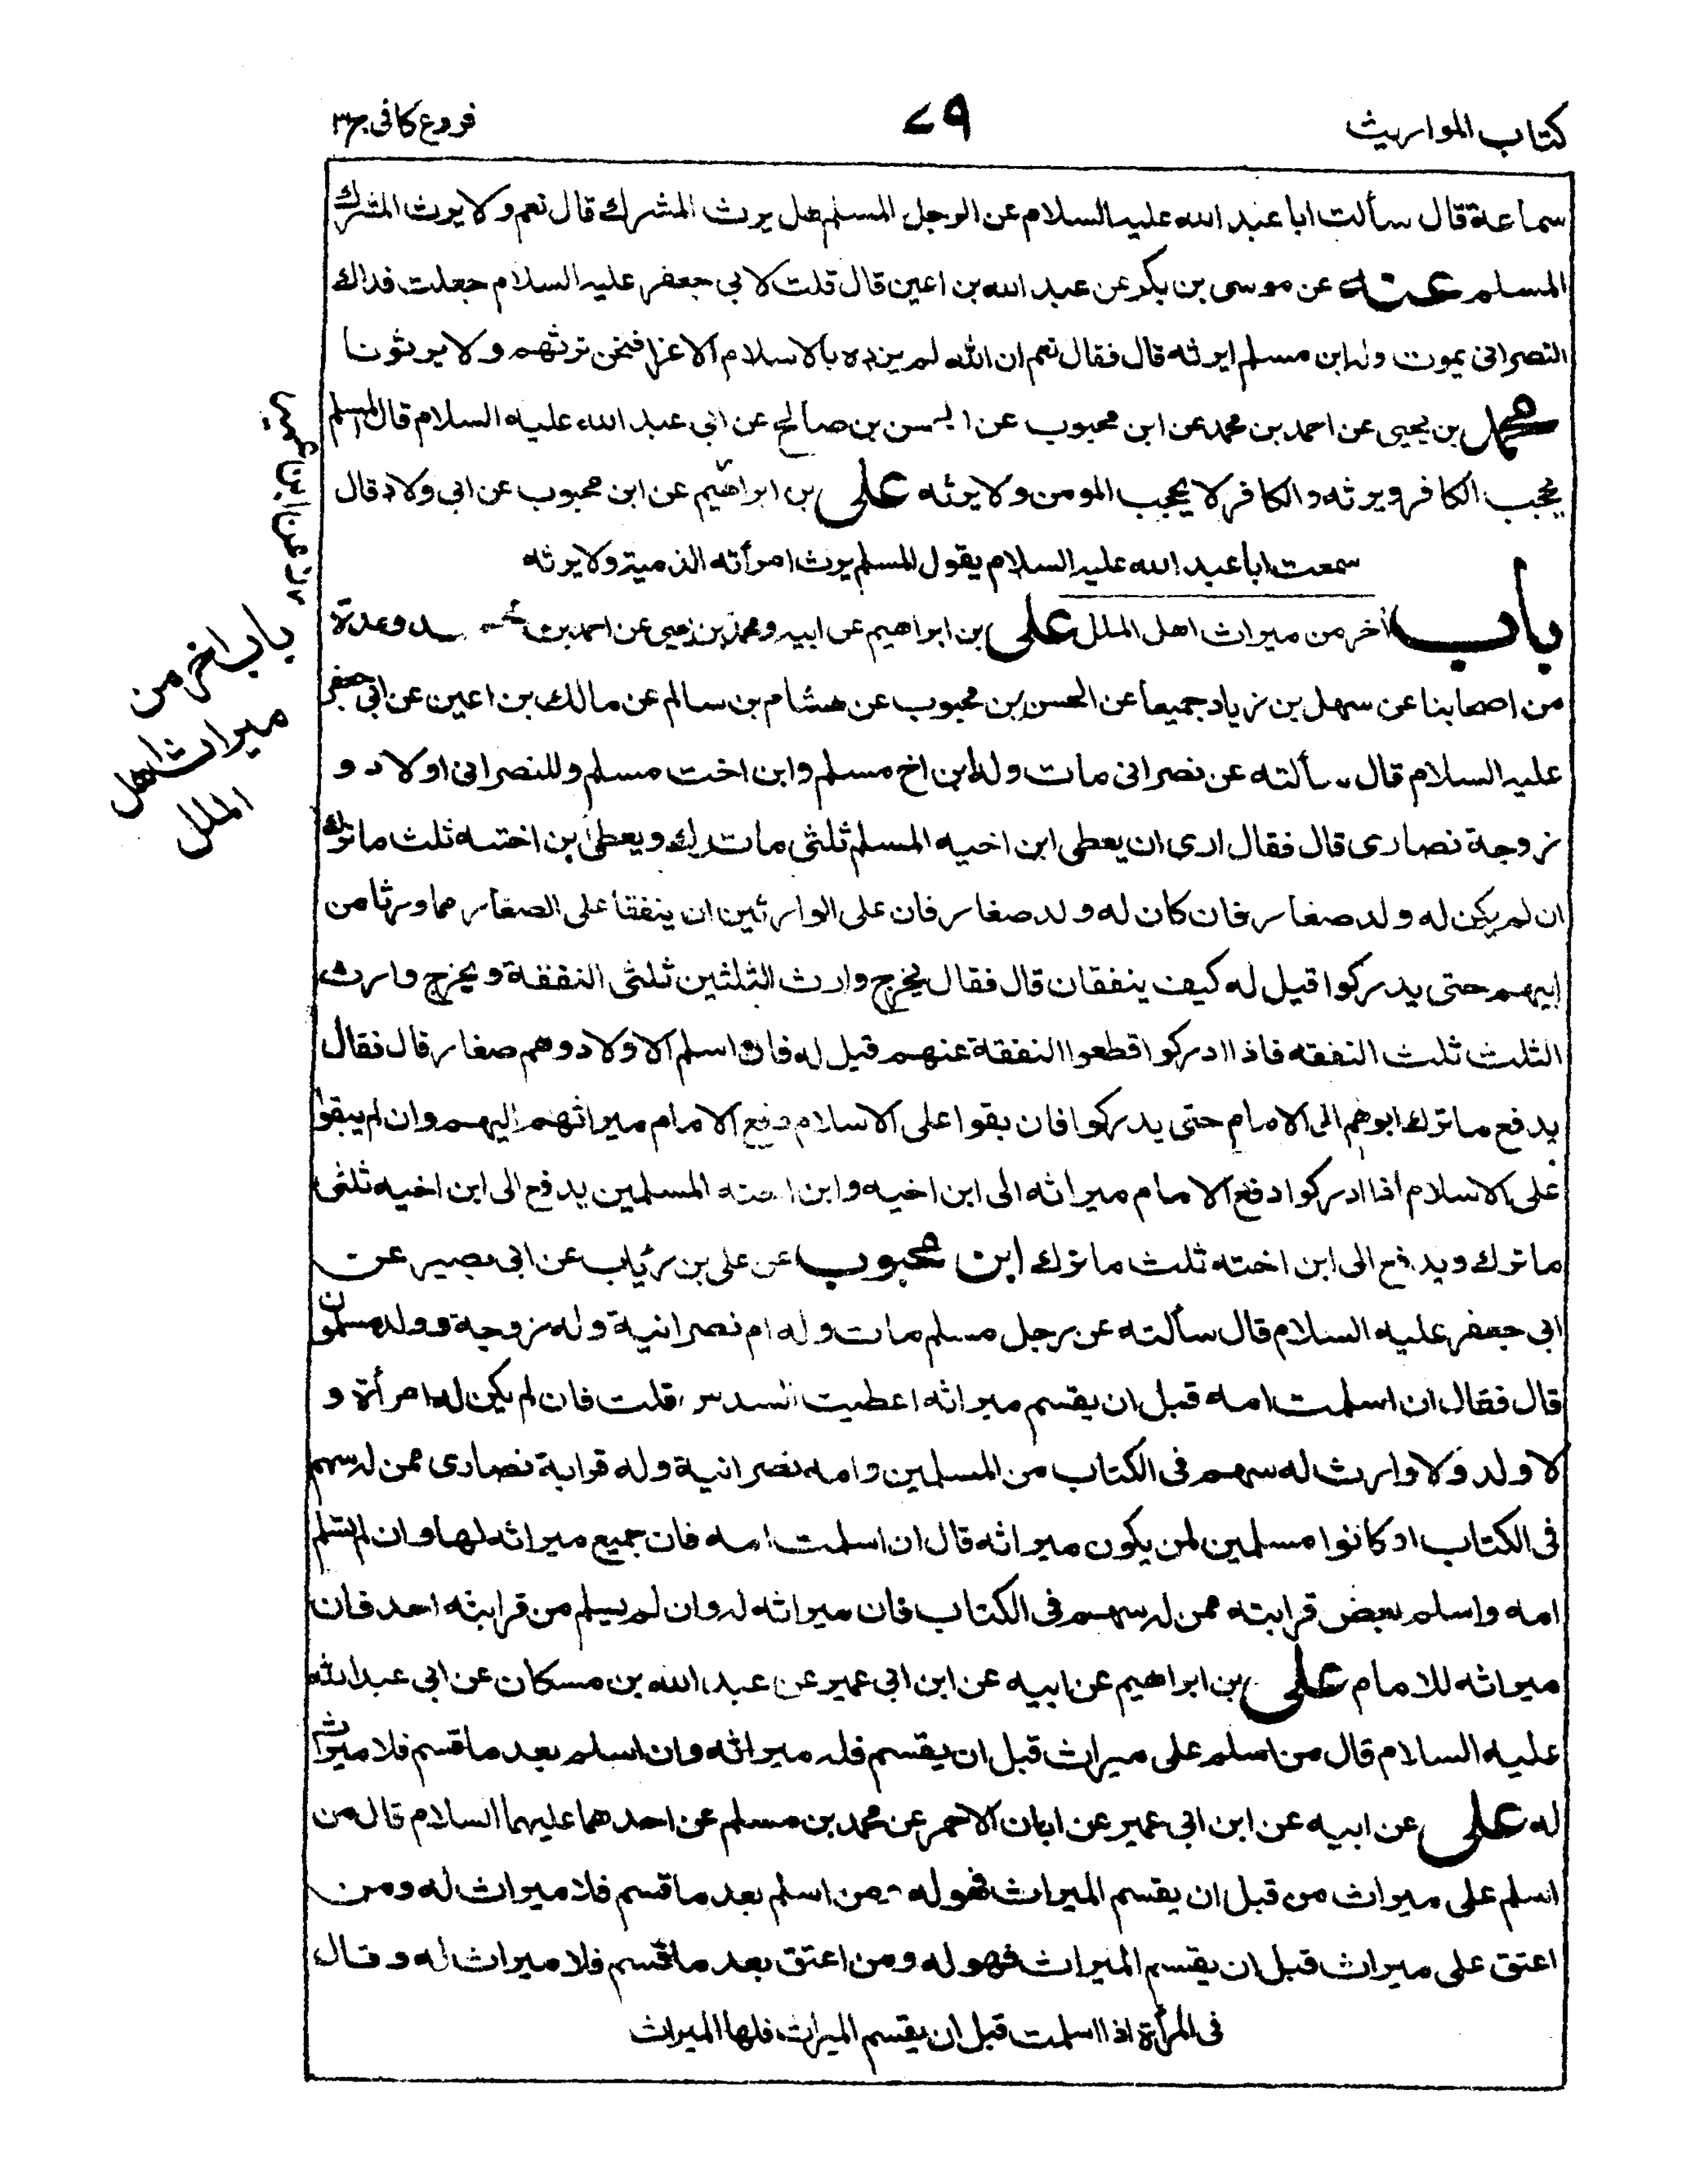 كتاب المواريث
٧٩
فروع كافى ج٣
سماعة قال سألت ابا عبد الله عليه السلام عن الرجل المسلم هل يرث المشرك قال نعم ولا يرث المشرك
المسلم عنه عن موسى بن بكر عن عبد الله بن اعين قال قلت لابي جعفر عليه السلام جعلت فداك
النصرانى يموت وله ابن مسلم ايرثه قال فقال نعم ان الله لم يزده بالاسلام الا عزا فنحن نرثهم ولا يرثونا
محمد بن يحيى عن احمد بن محمد عن ابن محبوب عن الحسن بن صالح عن ابى عبد الله عليه السلام قال المسلم
يحجب الكافر ويرثه والكافر لا يحجب المومن ولا يرثه على بن ابراهيم عن ابن محبوب عن ابى ولاد قال
سمعت ابا عبد الله عليه السلام يقول المسلم يرث امرأته الذمية ولا يرثه
باب اخر من ميراث اهل الملل على بن ابراهيم عن ابيه ومحمد بن يحيى عن احمد بن محمد وعدة
من اصحابنا عن سهل بن زياد جميعا عن الحسن بن محبوب عن هشام بن سالم عن مالك بن اعين عن ابى جعفر
عليه السلام قال سألته عن نصرانى مات وله ابن اخ مسلم وابن اخت مسلم وللنصرانى اولاد و
زوجة نصارى قال فقال ارى ان يعطى ابن اخيه المسلم ثلثى ما ترك ويعطى ابن اخته ثلث ما ترك
ان لم يكن له ولد صغار فان كان له ولد صغار فان على الوارثين ان ينفقا على الصغار مما ورثا من
ابيهم حتى يدركوا قيل له كيف ينفقان قال فقال يخرج وارث الثلثين ثلثى النفقة ويخرج وارث
الثلث ثلث النفقه فاذا ادركوا قطعوا النفقة عنهم قيل له فان اسلم الاولاد وهم صغار قال فقال
يدفع ما ترك ابوهم الى الامام حتى يدركوا فان بقوا على الاسلام دفع الامام ميراثهم اليهم وان لم يبقوا
على الاسلام اذا ادركوا دفع الامام ميراثه الى ابن اخيه وابن اخته المسلمين يدفع الى ابن اخيه ثلثى
ما ترك ويدفع الى ابن اخته ثلث ما ترك ابن محبوب عن على بن رئاب عن ابى بصير عن
ابى جعفر عليه السلام قال سألته عن رجل مسلم مات وله ام نصرانية وله زوجة وولد مسلمون
قال فقال ان اسلمت امه قبل ان يقسم ميراثه اعطيت السدس قلت فان لم يكن له امرأة و
لا ولد ولا وارث له سهم فى الكتاب من المسلمين وامه نصرانية وله قرابة نصارى ممن له سهم
فى الكتاب او كانوا مسلمين لمن يكون ميراثه قال ان اسلمت امه فان جميع ميراثه لها وان لم تسلم
امه واسلم بعض قرابته ممن له سهم فى الكتاب فان ميراثه له وان لم يسلم من قرابته احد فان
ميراثه للامام على بن ابراهيم عن ابيه عن ابن ابى عمير عن عبد الله بن مسكان عن ابى عبد الله
عليه السلام قال من اسلم على ميراث قبل ان يقسم فله ميراثه وان اسلم بعد ما قسم فلا ميراث
له على عن ابيه عن ابن ابى عمير عن ابان الاحمر عن محمد بن مسلم عن احدهما عليهما السلام قال من
اسلم على ميراث من قبل ان يقسم الميراث فهو له ومن اسلم بعد ما قسم فلا ميراث له ومن
اعتق على ميراث قبل ان يقسم الميراث فهو له ومن اعتق بعد ما قسم فلا ميراث له وقال
فى المرأة اذا اسلمت قبل ان يقسم الميراث فلها الميراث
باب اخر من
ميراث اهل
الملل